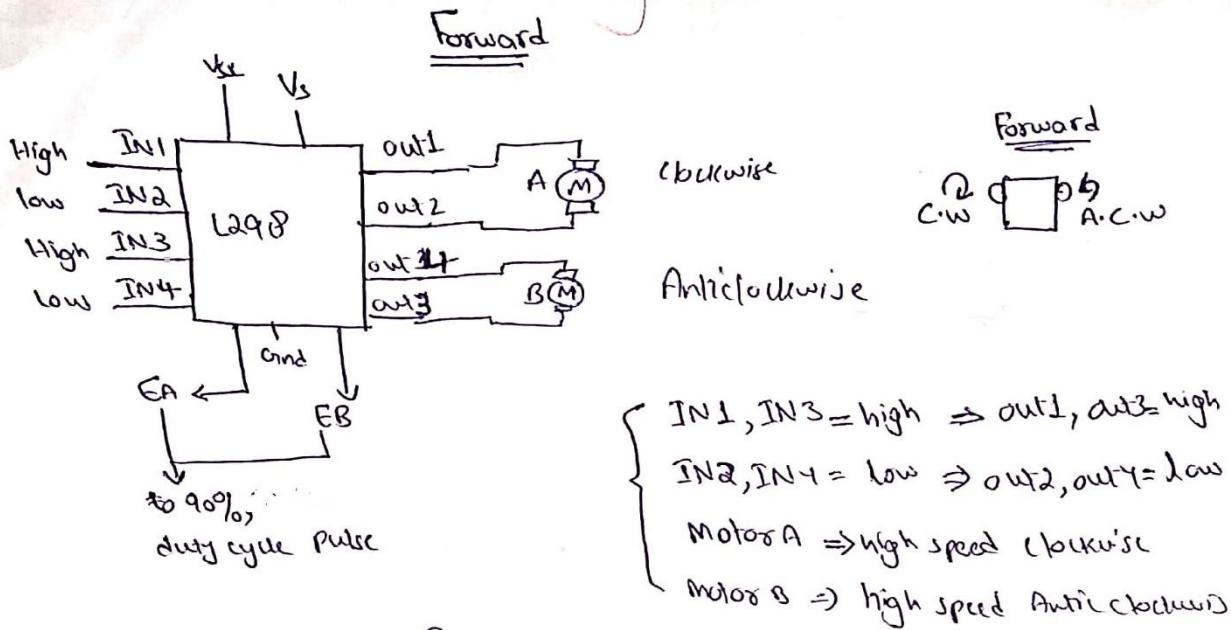 Forward
Vss
Vs
High IN1
low IN2
High IN3
low IN4
L298
out1
out2
out4
out3
A M
B M
Clockwise
Anticlockwise
Gnd
EA
EB
to 90%,
duty cycle pulse
Forward
C.W
A.C.W
IN1, IN3 = high ⇒ out1, out3 = high
IN2, IN4 = low ⇒ out2, out4 = low
Motor A ⇒ high speed clockwise
Motor B ⇒ high speed Anticlockwis